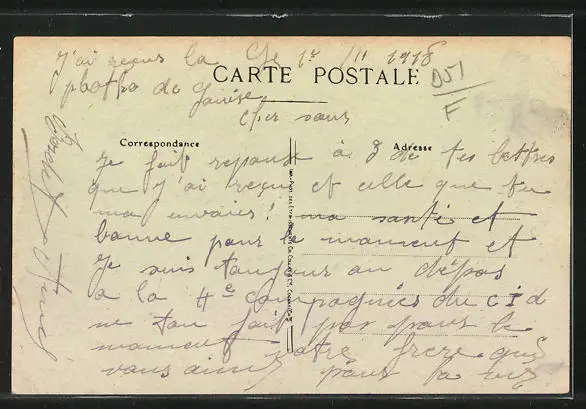 J'ai reçus la
photo de
Le 1r 11 1918
CARTE POSTALE
D51
F
Cher sœur
Correspondance
Adresse
Je fait reponse à 3 de tes lettres
que j'ai reçu et celle que tu
ma envoies! ma santé et
bonne pour le moment et
Je suis toujour au dépos
a la 4e compagnies du C I d
ne ton fait pas pour le
moment votre frere que
vous aime pour la vie